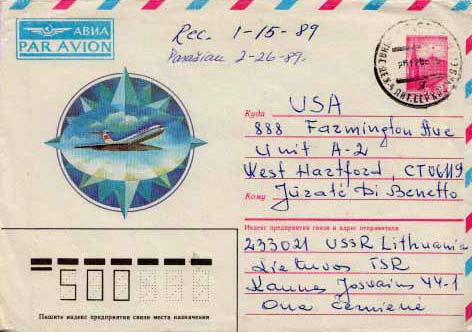 АВИА
PAR AVION
Rec. 1-15-89
Parašiau 2-26-89.
Куда
USA
888 Farmington Ave
Unit A-2
West Hartford, CT 06119
Кому
Jūratė Di Benetto
Индекс предприятия связи и адрес отправителя
233021 USSR Lithuania
Lietuvos TSR
Kaunas Josvainių 44-1
Ona Černienė
500
Пишите индекс предприятия связи места назначения